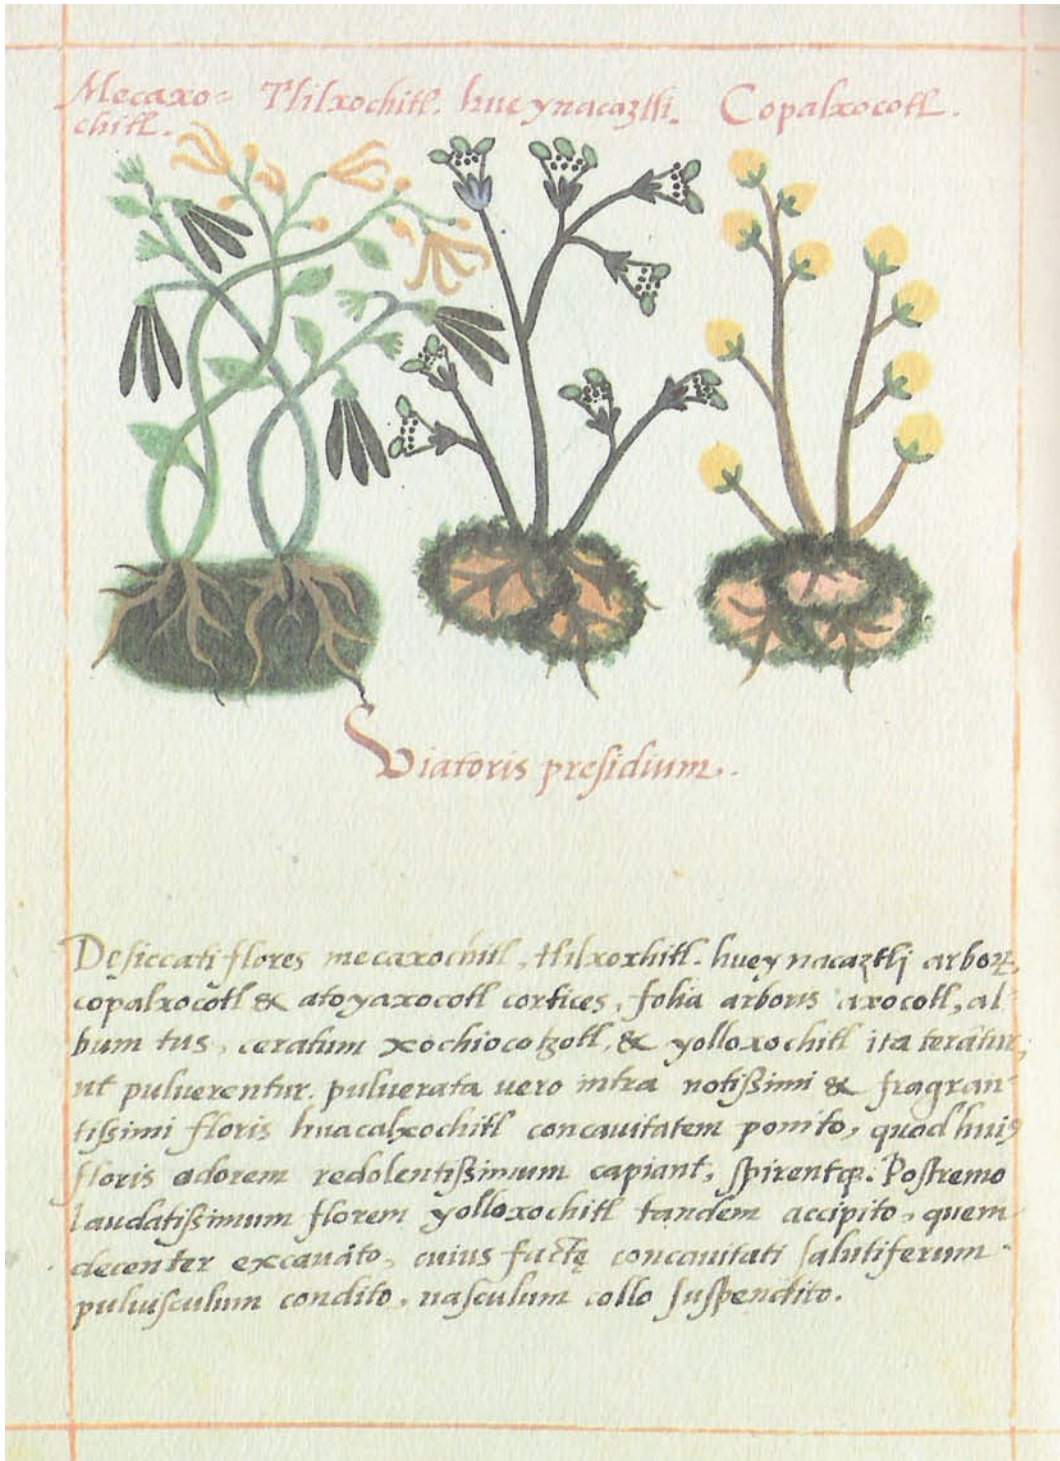 Mecaxo= Tlilxochitl. hueynacaztli. Copalxocotl.
chitl.
Viatoris presidium.
Desiccati flores mecaxochitl, tlilxoxhitl. huey nacaztlj arbor,
copalxocotl & atoyaxocotl cortices, folia arboris axocotl, al
bum tus, ceratum xochiocotzotl, & yolloxochitl ita terātur,
ut puluerentur. puluerata uero intra notißimi & fragran
tißimi floris huacalxochitl concauitatem ponito, quod huiꝰ
floris odorem redolentißimum capiant, spirentqꝫ. Postremo
laudatißimum florem yolloxochitl tandem accipito, quem
decenter excauāto, cuius factę concauitati salutiferum
puluisculum condito, uasculum collo suspendito.